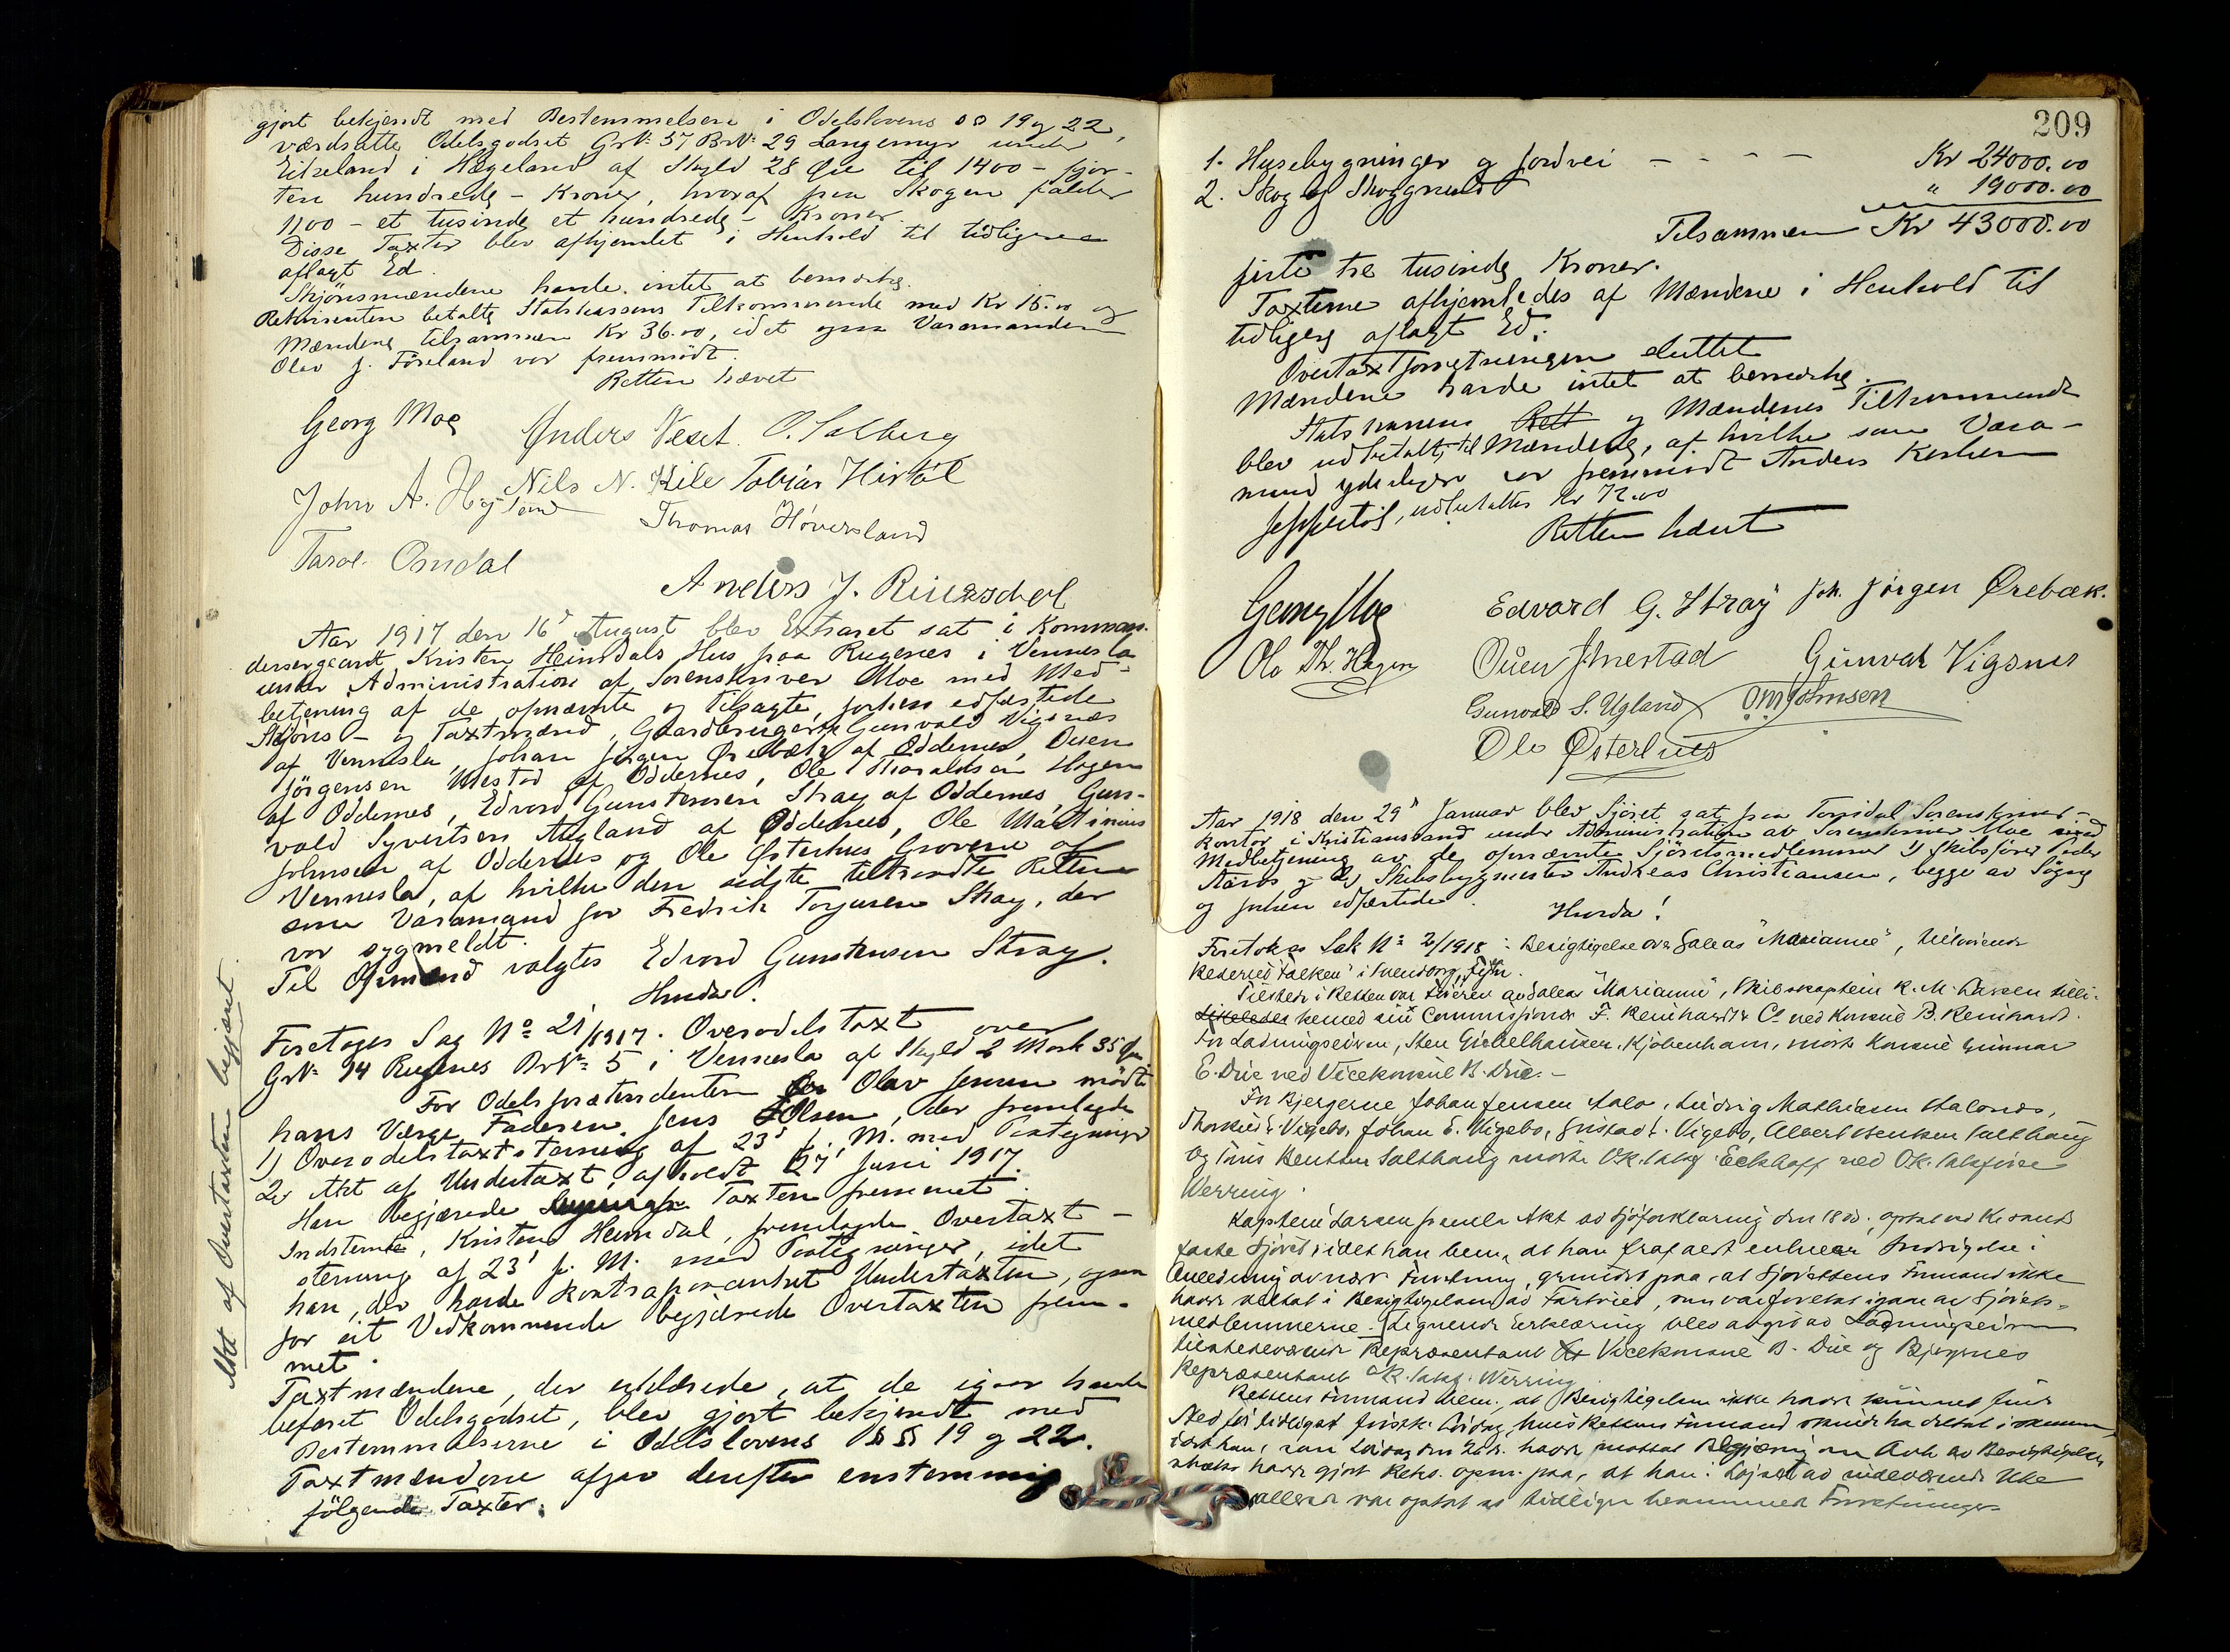 gjort bekjendt med Bestemmelsene i Odelslovens §§ 19 og 22,
værdsatte Odelsgodset Gr№ 57 Br№ 29 Langemyr under
Eikeland i Hægeland af Skyld 28 Øre til 1400 – fjor-
ten hundrede – Kroner, hvoraf paa Skogen falder
1100 – et tusinde et hundrede – Kroner.
Disse Taxter blev afhjemlet i Henhold til tidligere
aflagt Ed.
Skjönsmændene havde intet at bemærke.
Rekvirenten betalte Statskassens Tilkommende med Kr 15.00 og
Mændene tilsammen Kr 36.00, idet ogsaa Varamanden
Olav J. Föreland var fremmödt.
Retten hævet
Georg Moe Anders Veset. O. Solberg
John A. Hægeland Nils N. Kile Tobias Hirtöl
Thomas Höversland
Tarol. Omdal
Anders J.
Aar 1917 den 16d August blev Extraret sat i Komman-
dersergeant Kristen Heimdals Hus paa Rugenes i Vennesla
under Administration af Sorenskriver Moe med Med-
betjening af de opnævnte og tilsagte, forhen edfæstede
Skjöns- og Taxtmænd, Gaardbrugerne Gunvald Vigsnæs
af Vennesla, Johan Jörgen Örebæk af Oddernes, Ouen
Jörgensen Mestad af Oddernes, Ole Thoraldsen Hagen
af Oddernes, Edvard Gunstensen Stray af Oddernes, Gun-
vald Syvertsen Augland af Oddernes, Ole Martinius
Johnsen af Oddernes og Ole Østerhus Grovene af
Vennesla, af hvilke den sidste tiltraadte Retten
som Varamand for Fredrik Torjusen Stray, der
var sygmeldt.
Til Formand valgtes Edvard Gunstensen Stray.
Hvorda!
Foretoges Sag No 21/1917. Overodelstaxt over
Gr№ 94 Rugenes Br№ 5 i Vennesla af Skyld 2 Mark 35 Øre
For Odelsprætendenten Olav Jensen mödte
hans Værge Faderen, Jens Olsen, der fremlagde
1) Overodelstaxtstævning af 23' f. M. med Paategninger
2) Akt af Undertaxt, afholdt 27' Juni 1917.
Han begjærede Taxten fremmet.
Indstevnte, Kristen Heimdal, fremlagde Overtaxt-
stevning af 23' f. M. med Paategninger, idet
han, der havde kontrapaaanket Undertaxten, ogsaa
for sit Vedkommende begjærede Overtaxten frem-
met.
Taxtmændene, der erklærede, at de igaar havde
befaret Odelsgodset, blev gjort bekjendt med
Bestemmelserne i Odelslovens §§ 19 og 22.
Taxtmændene afgav derefter enstemmig
fölgende Taxter.
Akt af Overtaxten begjæret.
209
1. Husebygninger og Jordvei – – – – Kr 24000.00
2. Skog og Skoggrund " 19000.00
Tilsammen Kr 43000.00
firti tre tusinde Kroner.
Taxterne afhjemledes af Mændene i Henhold til
tidligere aflagt Ed.
Overtaxtforretningen sluttet
Mændene havde intet at bemærke.
Statskassens Rett og Mændenes Tilkommende
blev udbetalt, til Mændene, af hvilke som Vara-
mand yderligere var fremmödt Anders Kosheim
udbetaltes Kr 72.00
Retten hævet
Georg Moe Edvard G. Stray Joh. Jörgen Ørebæk.
Ole Th. Hagen Ouen Mestad Gunvald Vigsnes
Gunvald S. Ugland O M Johnsen
Ole Østerhus
Aar 1918 den 29' Januar blev Sjöret sat paa Torridal Sorenskriver-
kontor i Kristianssand under Administration av Sorenskriver Moe med
Medbetjening av de opnævnte Sjöretsmedlemmer 1) Skibsförer Peder
Aarös og 2) Skibsbygmester Andreas Christiansen, begge av Søgne
og forhen edfæstede.
Hvorda!
Foretokes Sak №: 2/1918: Besigtigelse over Galeas "Marianne", tilhörende
Rederiet "Falken" i Svendborg,
Tilstede i Retten var Föreren av Galeas "Marianne", Skibskaptein K. M. Larsen tilli-
Likeledes hemed sin Commissionær F. Reinhardt & Co ved Konsul B. Reinhardt.
For Ladningseieren, Sten Gickelhausen. Kjöbenham, mötte Konsul Gunnar
E. Due ved Vicekonsul B. Due. –
For Bjergerne Johan Jensen Aalo, Ludvig Mathiesen
Vigebo, Johan E. Vigebo, Gustav Vigebo, Albert Bentsen Salthaug
og Tönis Bentsen Salthaug mötte O.R. sakf. Eckhoff ved O.R. sakförer
Werring.
Kaptein Larsen fremla Akt av Sjöforklaring den 18 ds. optat ved Kr.sands
faste Sjöret, idet han bem. at han frafaldt enhver Indsigelse i
Anledning av nærv. Forretning, grundet paa, at Sjörettens Formand ikke
hadde deltat i Besigtigelsen av Fartöiet, som var foretat igaar av Sjörets-
medlemmerne. Lignende Erklæring blev avgit av Ladningseierens
tilstedeværende Repræsentant Vicekonsul B. Due og Bjergernes
Repræsentant O.R. sakf. Werring.
Rettens Formand bem., at Besigtigelsen ikke hadde kunnet finde
Sted för tidligst Lördag, hvis Rettens Formand skulde ha deltat i samme,
idet han, som Lördag den 26 ds. hadde mottat Begjæring om Avh. av Besigtigelse
straks hadde gjort Rekv. opm. paa, at han i Löpet av indeværende Uke
allerede var optat av tidligere berammede Forretninger